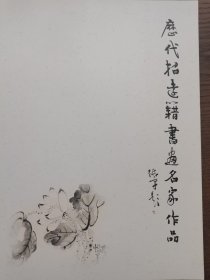 歷代招遠籍書畫名家作品